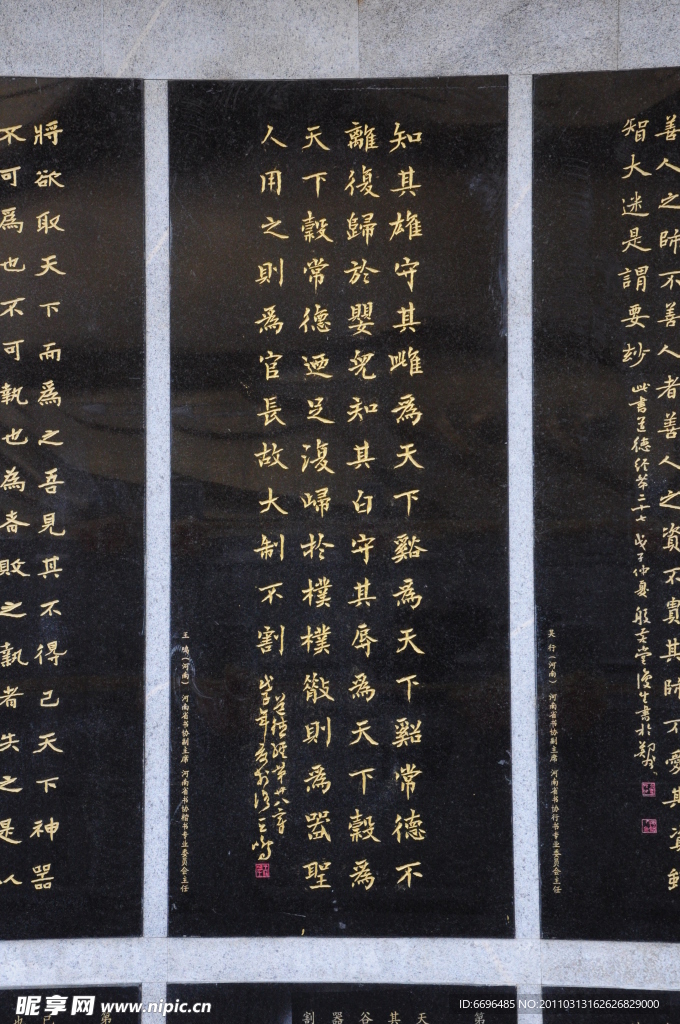 善人之師不善人者善人之資不貴其師不愛其資雖
智大迷是謂要玅
此書道德經第二十七
吴行(河南) 河南省书协副主席 河南省书协行书专业委员会主任
知其雄守其雌為天下谿為天下谿常德不
離復歸於嬰兒知其白守其辱為天下穀為
天下穀常德迺足復歸於樸樸散則為器聖
人用之則為官長故大制不割
道德經第廿八章
王鳴(河南) 河南省书协副主席 河南省书协楷书专业委员会主任
將欲取天下而為之吾見其不得已天下神器
不可為也不可執也為者敗之執者失之是以
第
天
其
谷
器
割
第
已
也
昵享网 www.nipic.cn
ID:6696485 NO:20110313162626829000